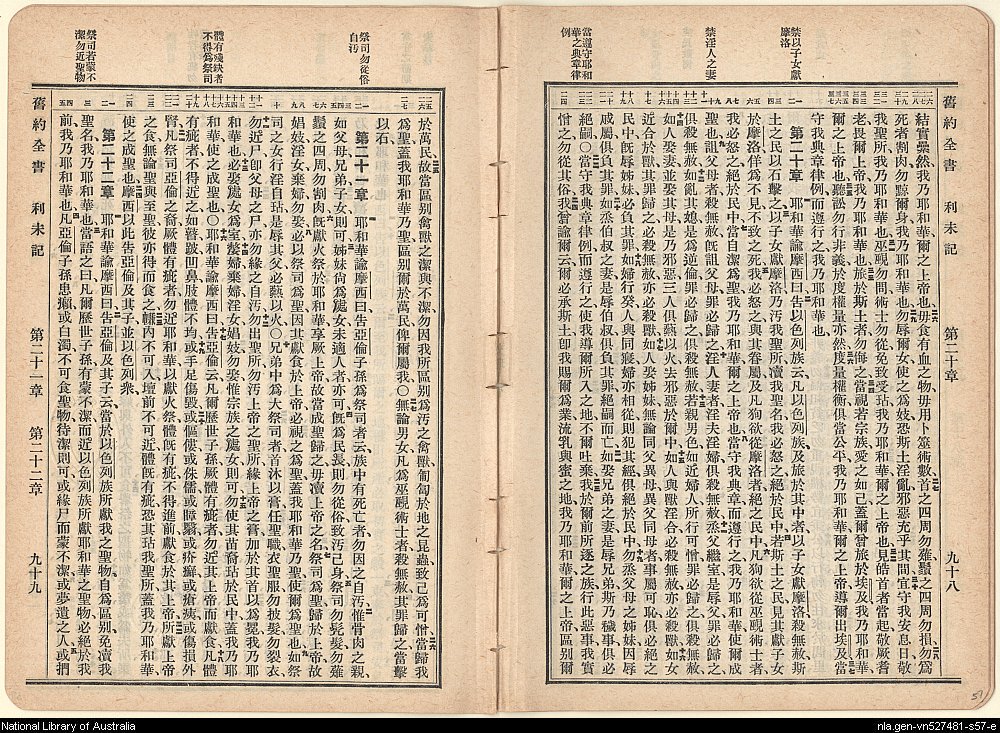 禁以子女獻摩洛
禁淫人之妻
當遵守耶和華之典章律例
舊約全書 利未記 第二十章 九十八
結實纍然我乃耶和華爾之上帝也毋食有血之物毋用卜筮術數首之四周勿薙鬚之四周勿損勿爲
死者割肉勿黥爾身我乃耶和華也勿辱爾女使之爲妓恐斯土淫亂邪惡充乎其間宜守我安息日敬
我聖所我乃耶和華也巫覡勿問術士勿從免致受玷我乃耶和華爾之上帝也見皓首者當起敬厥耆
老畏爾上帝我乃耶和華也旅於斯土者勿侮之當視若宗族愛之如己蓋爾曾旅於埃及我乃耶和華
爾之上帝也聽訟勿行非義於度權量亦然度量權衡俱當公平我乃耶和華爾之上帝導爾出埃及當
守我典章律例而遵行之我乃耶和華也
第二十章 耶和華諭摩西曰告以色列族云凡以色列族及旅於其中者以子女獻摩洛殺無赦斯
土之民以石擊之以子女獻摩洛乃汚我聖所瀆我聖名我必怒之絕於民中若斯土之民見其獻子女
於摩洛佯爲不見不致之死我必怒之與其眷屬及凡狥欲從摩洛者絕之民中凡狥欲從巫覡術士者
我必怒之絕於民中當自潔成聖我乃耶和華爾之上帝也當守我典章而遵行之我乃耶和華使爾成
聖也詛父母者殺無赦旣詛父母罪必歸之淫人妻者淫夫淫婦俱殺無赦烝父繼室是辱父罪必歸之
俱殺無赦如亂其媳是爲逆倫罪必歸之俱殺無赦若親男色如近婦人所行可憎罪必歸之俱殺無赦
如人娶妻並娶其母是爲邪惡三人俱爇以火去邪惡於爾中如人與獸淫合必殺無赦亦必殺獸如女
近合於獸其罪歸之必殺無赦亦必殺獸如人娶姊妹無論同父異母異父同母者事屬可恥俱必絕之
民中旣辱姊妹必負其罪如婦行癸人與同寢婦亦相從則犯其經俱絕於民中勿烝父母之姊妹因辱
戚屬俱負其罪如烝伯叔之妻是辱伯叔俱負其罪絕嗣而亡如娶兄弟之妻是辱兄弟斯乃穢事俱必
絕嗣○當守我典章律例而遵行之使我導爾所入之地不爾吐棄我於爾前所逐之族行此惡事我實
憎之勿從其俗我曾諭爾云爾必承斯土卽我賜爾爲業流乳與蜜之地我乃耶和華爾之上帝區別爾
祭司勿從俗自汚
體有殘缺者不得爲祭司
祭司若蒙不潔勿近聖物
於萬民故當區別禽獸之潔與不潔勿因我所區別爲汚之禽獸匍匐於地之昆蟲致己爲可憎當歸我
爲聖蓋我耶和華乃聖區別爾於萬民俾爾屬我○無論男女凡爲巫覡術士者殺無赦其罪歸之當擊
以石
第二十一章 耶和華諭摩西曰告亞倫子孫爲祭司者云族中有死亡者勿因之自汚惟骨肉之親
如父母兄弟子女則可姊妹尙爲處女未適人者亦可旣爲民長則勿從俗致汚己身祭司勿髡髮勿薙
鬚之四周勿割肉旣獻火祭於耶和華享厥上帝故當成聖歸之毋瀆上帝之名祭司爲聖歸於上帝故
娼妓淫女棄婦勿娶必以祭司爲聖因其獻食於上帝必視之爲聖蓋我耶和華乃聖使爾爲聖也如祭
司之女行淫自玷是辱其父必爇以火○兄弟中爲大祭司者首沐以膏任聖職衣聖服勿披髮勿裂衣
勿近尸卽父母之尸亦勿緣之自汚勿出聖所勿汚上帝之聖所緣上帝之膏加於其首以爲冕我乃耶
和華也必娶處女爲室嫠婦棄婦淫女娼妓勿娶惟宗族之處女則可勿使其苗裔玷於民中蓋我乃耶
和華使之成聖也○耶和華諭摩西曰告亞倫云凡爾歷世子孫厥體有疵者勿近其上帝而獻食凡體
有疵者不得近之如瞽跛凹鼻肢體不均或手足傷毀或傴僂或侏儒或矇翳或疥癬或瘡痍或傷損外
腎凡祭司亞倫之裔厥體有疵者勿近耶和華以獻火祭體旣有疵不得進前獻食於其上帝所獻上帝
之食無論聖與至聖彼亦得而食之幬內不可入壇前不可近體旣有疵恐其玷我聖所蓋我乃耶和華
使之成聖也摩西以此告亞倫及其子並以色列衆
第二十二章 耶和華諭摩西曰告亞倫及其子云當於以色列族所獻我之聖物自爲區別免瀆我
聖名我乃耶和華也當語之曰凡爾歷世子孫有蒙不潔而近以色列族所獻耶和華之聖物必絕於我
前我乃耶和華也凡亞倫子孫患癩或白濁不可食聖物待潔則可或緣尸而蒙不潔或夢遺之人或捫
舊約全書 利未記 第二十一章 第二十二章 九十九
51
National Library of Australia
nla.gen-vn527481-s57-e